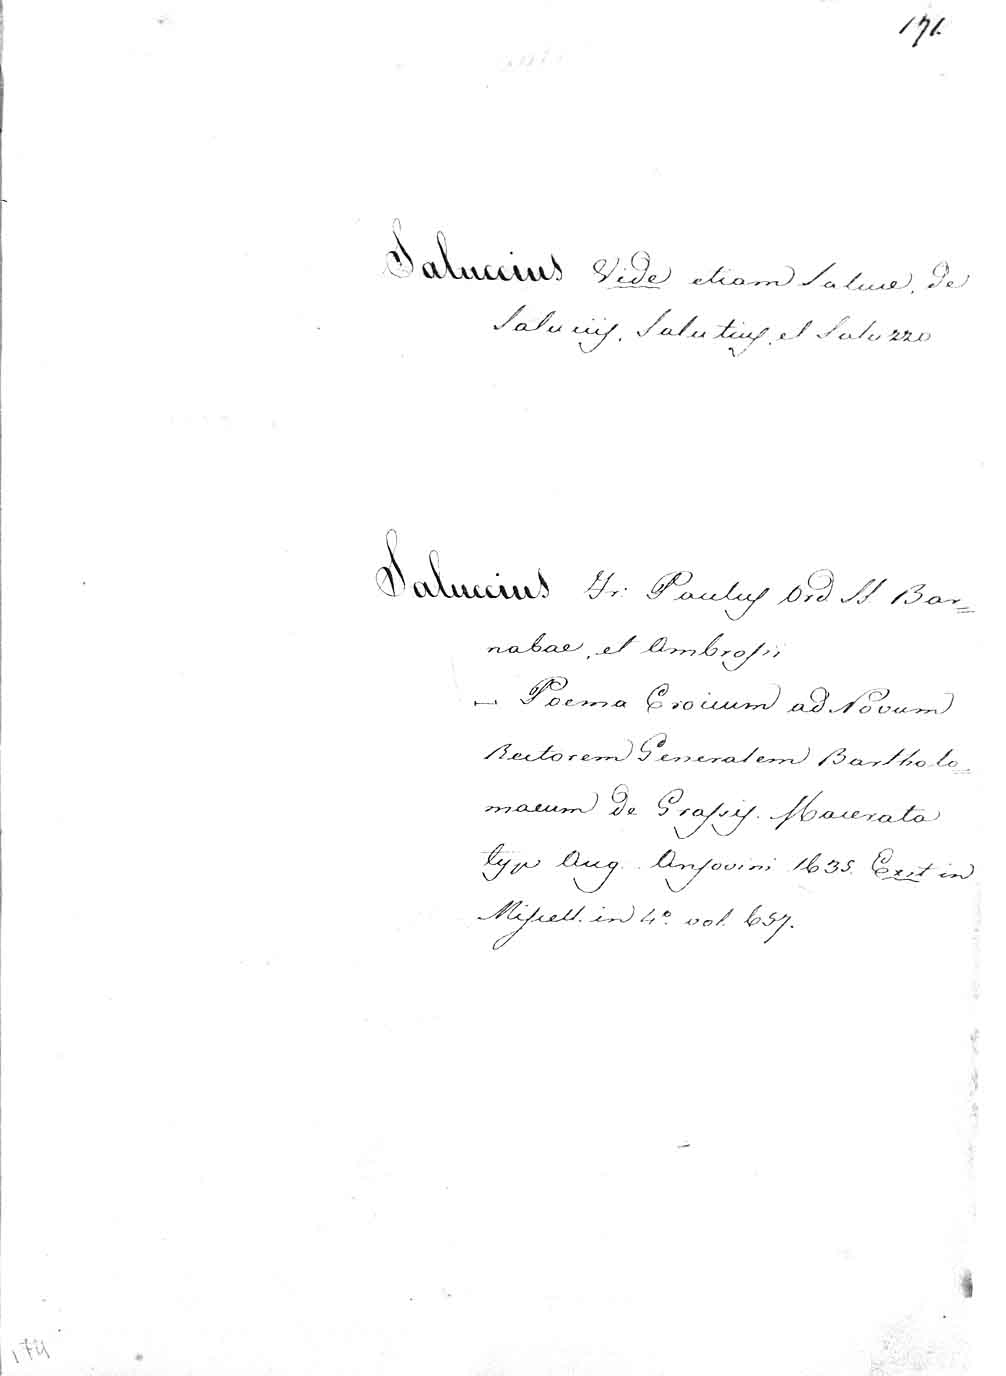 171.
Saluccius Vide etiam Saluce, de
Saluciis, Salutius, et Saluzzo
Saluccius Fr: Paulus Ord SS. Bar=
nabae, et Ambrosii
— Poema Eroicum ad Novum
Rectorem Generalem Bartholo=
maeum de Grassis. Macerata
typ Aug. Ansovini 1635. Exit in
Miscell. in 4.° vol. 657.
174